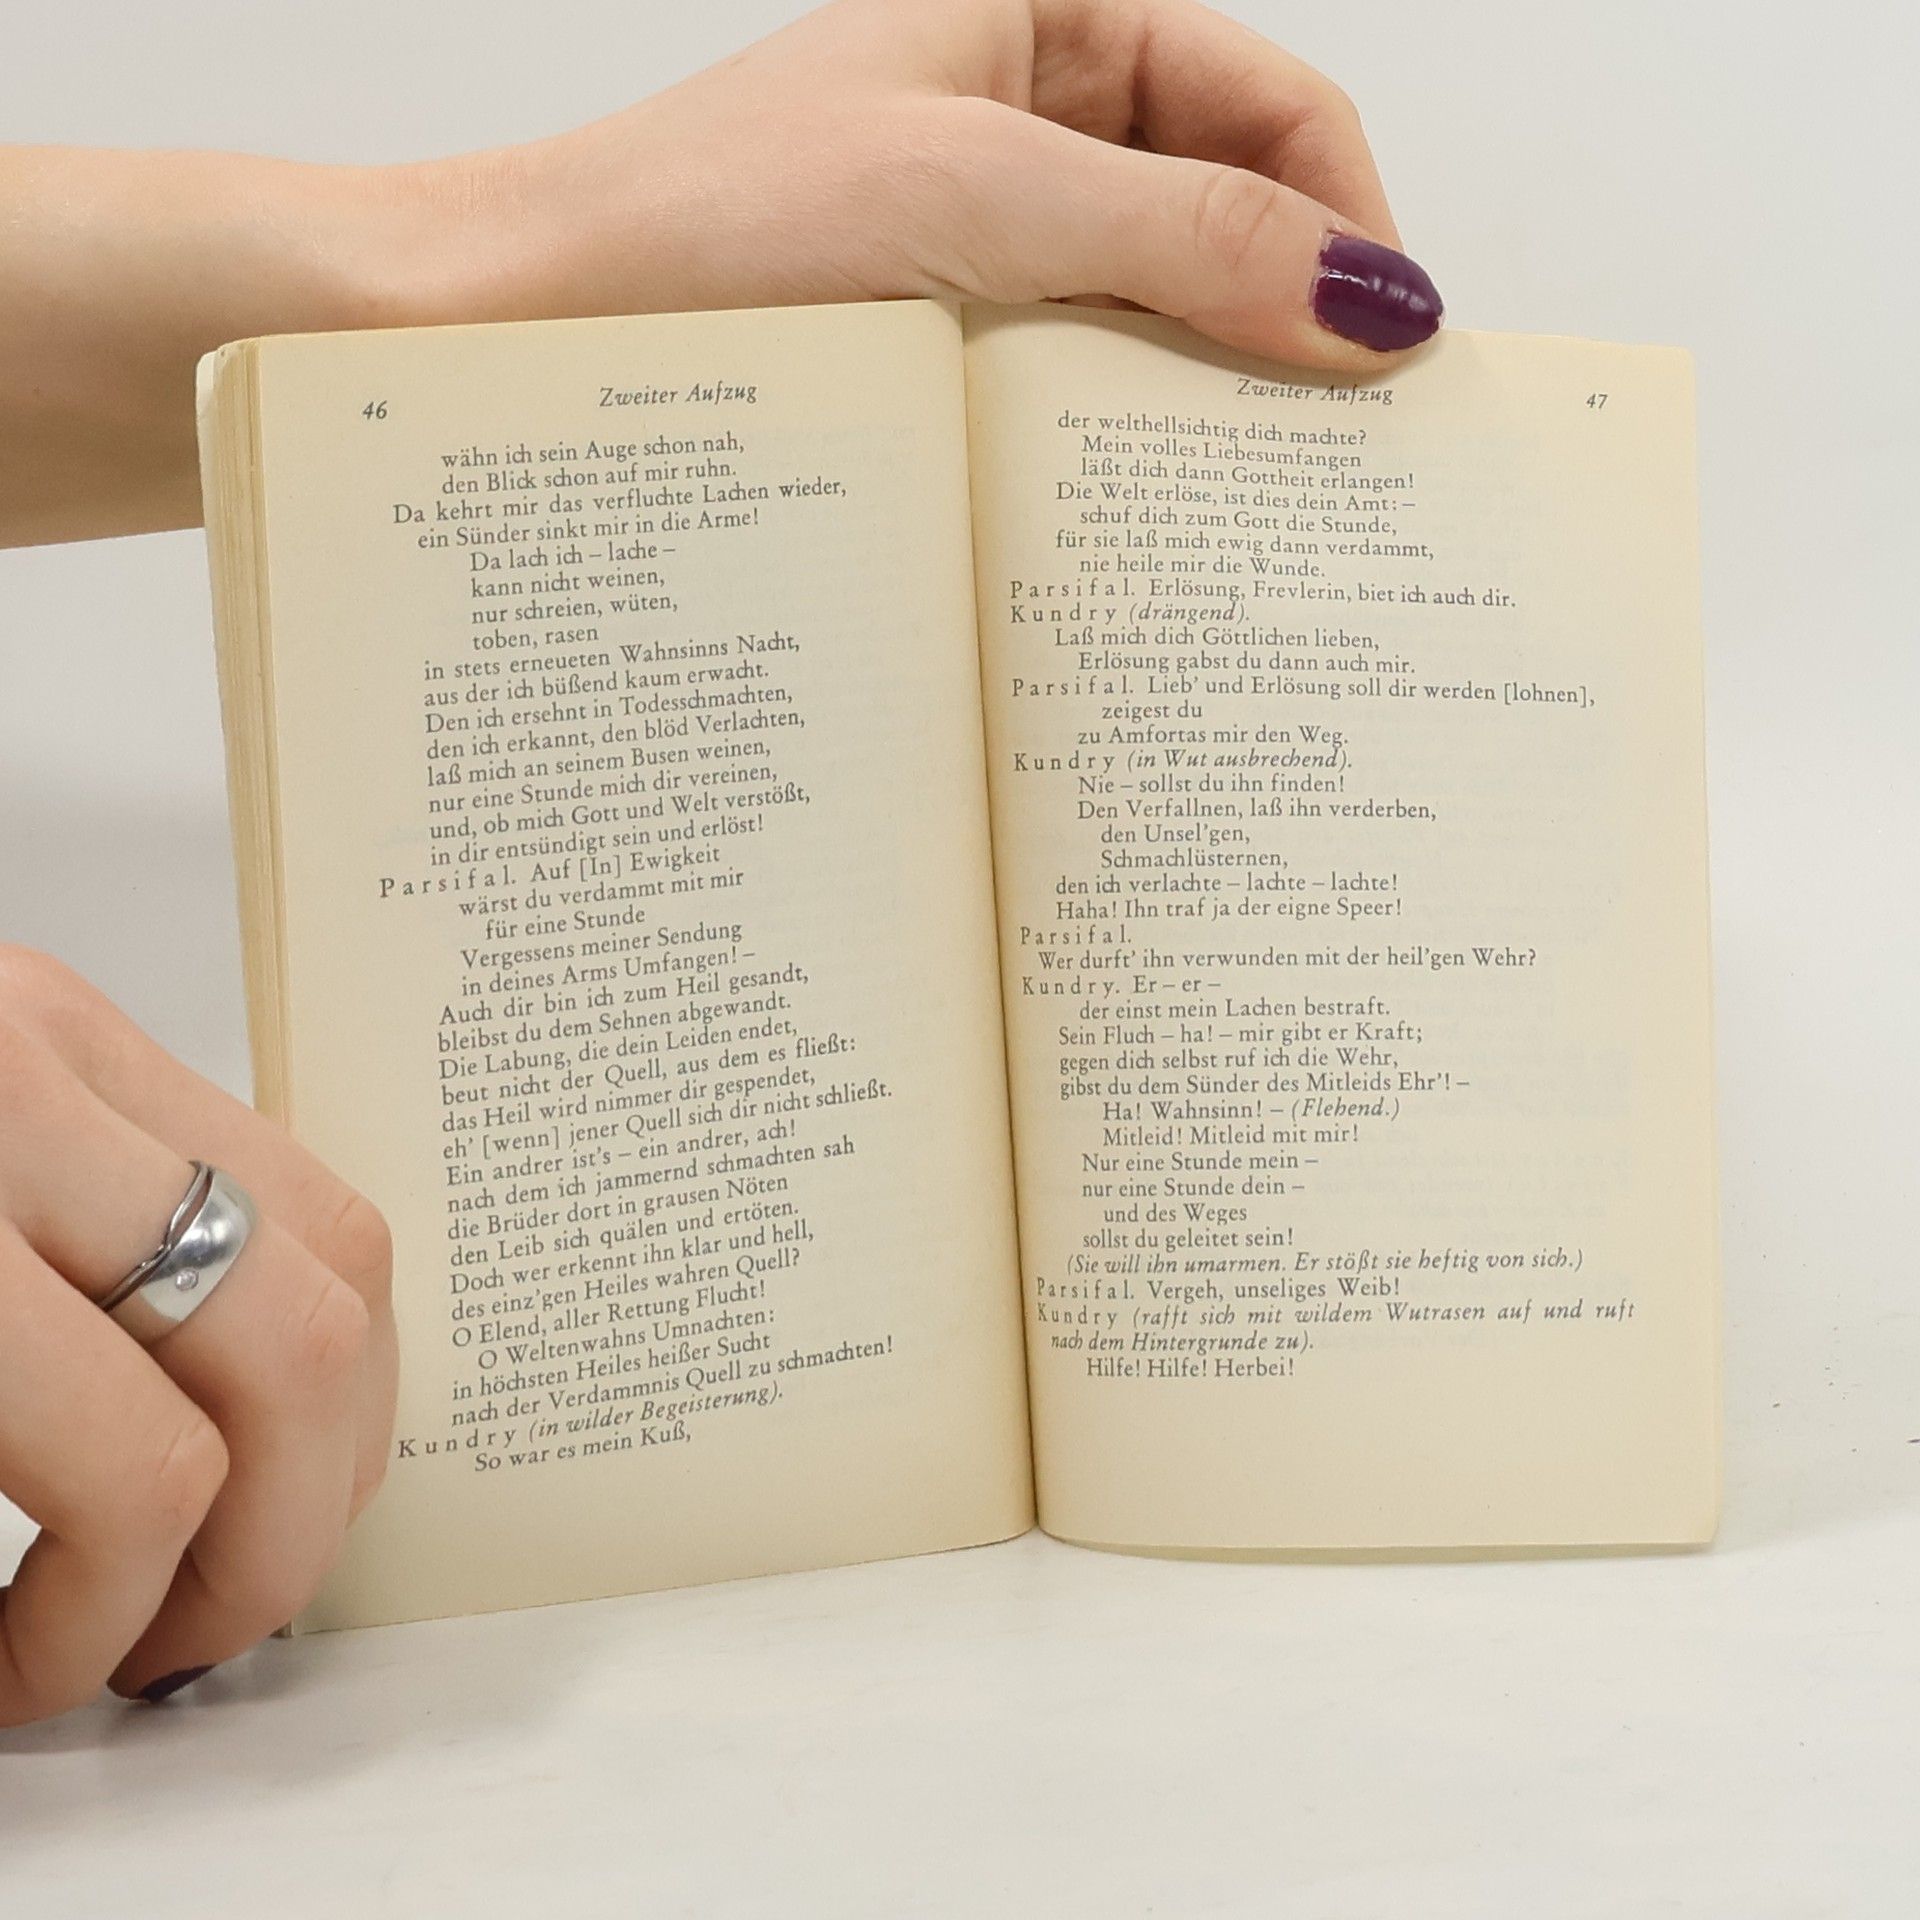 46
Zweiter Aufzug
wähn ich sein Auge schon nah,
den Blick schon auf mir ruhn.
Da kehrt mir das verfluchte Lachen wieder,
ein Sünder sinkt mir in die Arme!
Da lach ich – lache –
kann nicht weinen,
nur schreien, wüten,
toben, rasen
in stets erneueten Wahnsinns Nacht,
aus der ich büßend kaum erwacht.
Den ich ersehnt in Todesschmachten,
den ich erkannt, den blöd Verlachten,
laß mich an seinem Busen weinen,
nur eine Stunde mich dir vereinen,
und, ob mich Gott und Welt verstößt,
in dir entsündigt sein und erlöst!
Parsifal. Auf [In] Ewigkeit
wärst du verdammt mit mir
für eine Stunde
Vergessens meiner Sendung
in deines Arms Umfangen! –
Auch dir bin ich zum Heil gesandt,
bleibst du dem Sehnen abgewandt.
Die Labung, die dein Leiden endet,
beut nicht der Quell, aus dem es fließt:
das Heil wird nimmer dir gespendet,
eh' [wenn] jener Quell sich dir nicht schließt.
Ein andrer ist's – ein andrer, ach!
nach dem ich jammernd schmachten sah
die Brüder dort in grausen Nöten
den Leib sich quälen und ertöten.
Doch wer erkennt ihn klar und hell,
des einz'gen Heiles wahren Quell?
O Elend, aller Rettung Flucht!
O Weltenwahns Umnachten:
in höchsten Heiles heißer Sucht
nach der Verdammnis Quell zu schmachten!
Kundry (in wilder Begeisterung).
So war es mein Kuß,
Zweiter Aufzug
47
der welthellsichtig dich machte?
Mein volles Liebesumfangen
läßt dich dann Gottheit erlangen!
Die Welt erlöse, ist dies dein Amt: –
schuf dich zum Gott die Stunde,
für sie laß mich ewig dann verdammt,
nie heile mir die Wunde.
Parsifal. Erlösung, Frevlerin, biet ich auch dir.
Kundry (drängend).
Laß mich dich Göttlichen lieben,
Erlösung gabst du dann auch mir.
Parsifal. Lieb' und Erlösung soll dir werden [lohnen],
zeigest du
zu Amfortas mir den Weg.
Kundry (in Wut ausbrechend).
Nie – sollst du ihn finden!
Den Verfallnen, laß ihn verderben,
den Unsel'gen,
Schmachlüsternen,
den ich verlachte – lachte – lachte!
Haha! Ihn traf ja der eigne Speer!
Parsifal.
Wer durft' ihn verwunden mit der heil'gen Wehr?
Kundry. Er – er –
der einst mein Lachen bestraft.
Sein Fluch – ha! – mir gibt er Kraft;
gegen dich selbst ruf ich die Wehr,
gibst du dem Sünder des Mitleids Ehr'! –
Ha! Wahnsinn! – (Flehend.)
Mitleid! Mitleid mit mir!
Nur eine Stunde mein –
nur eine Stunde dein –
und des Weges
sollst du geleitet sein!
(Sie will ihn umarmen. Er stößt sie heftig von sich.)
Parsifal. Vergeh, unseliges Weib!
Kundry (rafft sich mit wildem Wutrasen auf und ruft
nach dem Hintergrunde zu).
Hilfe! Hilfe! Herbei!